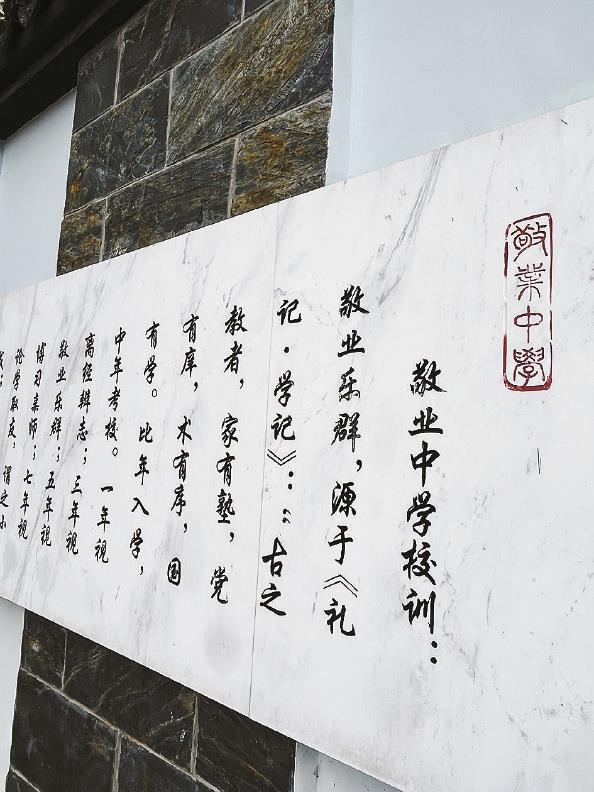 敬業中學
敬业中学校训：
敬业乐群，源于《礼
记·学记》：：古之
教者，家有塾，党
有庠，术有序，国
有学。比年入学，
中年考校。一年视
离经辨志；三年视
敬业乐群；五年视
博习亲师；七年视
论学取友，谓之小